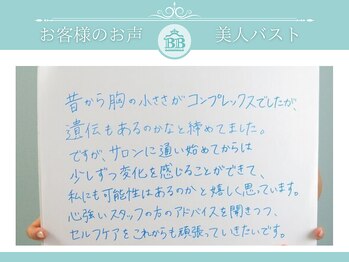 お客様のお声
BB
美人バスト
昔から胸の小ささがコンプレックスでしたが、
遺伝もあるのかなと諦めてました。
ですが、サロンに通い始めてからは
少しずつ変化を感じることができて、
私にも可能性はあるのかと嬉しく思っています。
心強いスタッフの方のアドバイスを聞きつつ、
セルフケアをこれからも頑張っていきたいです。